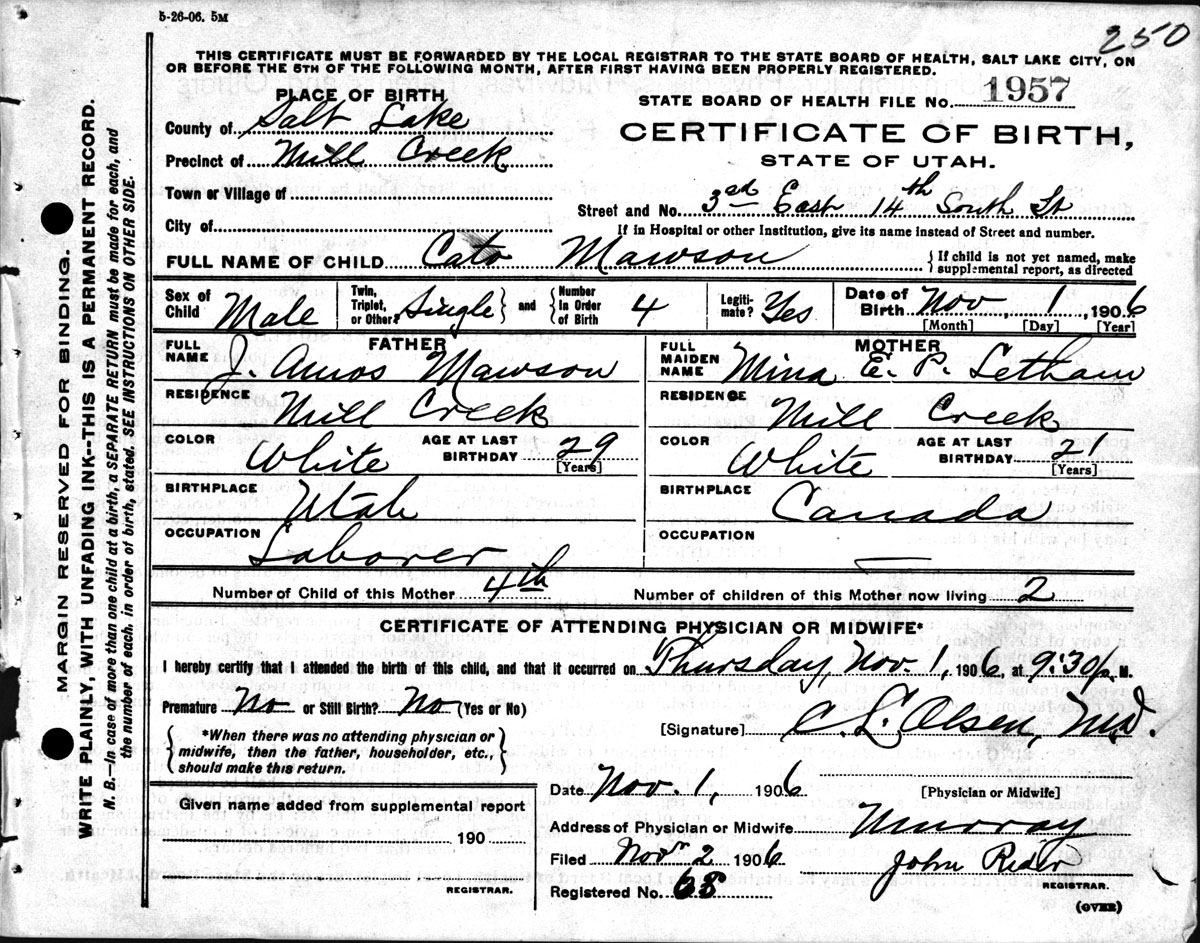 5-26-06. 5M
250
THIS CERTIFICATE MUST BE FORWARDED BY THE LOCAL REGISTRAR TO THE STATE BOARD OF HEALTH, SALT LAKE CITY, ON
OR BEFORE THE 5TH OF THE FOLLOWING MONTH, AFTER FIRST HAVING BEEN PROPERLY REGISTERED.
PLACE OF BIRTH
County of Salt Lake
Precinct of Mill Creek
Town or Village of
City of
STATE BOARD OF HEALTH FILE No. 1957
CERTIFICATE OF BIRTH,
STATE OF UTAH.
Street and No. 3rd East 14th South St
If in Hospital or other Institution, give its name instead of Street and number.
FULL NAME OF CHILD Cato Mawson {If child is not yet named, make
supplemental report, as directed
Sex of Child Male
Twin, Triplet, or Other? Single } and { Number in Order of Birth 4
Legitimate? Yes
Date of Birth Nov 1, 1906
[Month] [Day] [Year]
FATHER
FULL NAME J. Amos Mawson
RESIDENCE Mill Creek
COLOR White AGE AT LAST BIRTHDAY 29
[Years]
BIRTHPLACE Utah
OCCUPATION Laborer
MOTHER
FULL MAIDEN NAME Mina E. P. Letham
RESIDENCE Mill Creek
COLOR White AGE AT LAST BIRTHDAY 21
[Years]
BIRTHPLACE Canada
OCCUPATION —
Number of Child of this Mother 4th Number of children of this Mother now living 2
CERTIFICATE OF ATTENDING PHYSICIAN OR MIDWIFE*
I hereby certify that I attended the birth of this child, and that it occurred on Thursday, Nov. 1, 1906, at 9:30 p. M.
Premature No or Still Birth? No (Yes or No)
{*When there was no attending physician or
midwife, then the father, householder, etc.,
should make this return.}
[Signature] C. L. Olsen, M.D.
[Physician or Midwife]
Date Nov. 1, 1906
Address of Physician or Midwife Murray
Given name added from supplemental report
190
REGISTRAR.
Filed Nov 2 1906
John Rider
REGISTRAR.
Registered No. 68
(OVER)
MARGIN RESERVED FOR BINDING.
WRITE PLAINLY, WITH UNFADING INK--THIS IS A PERMANENT RECORD.
N. B.—In case of more than one child at a birth, a SEPARATE RETURN must be made for each, and
the number of each, in order of birth, stated. SEE INSTRUCTIONS ON OTHER SIDE.